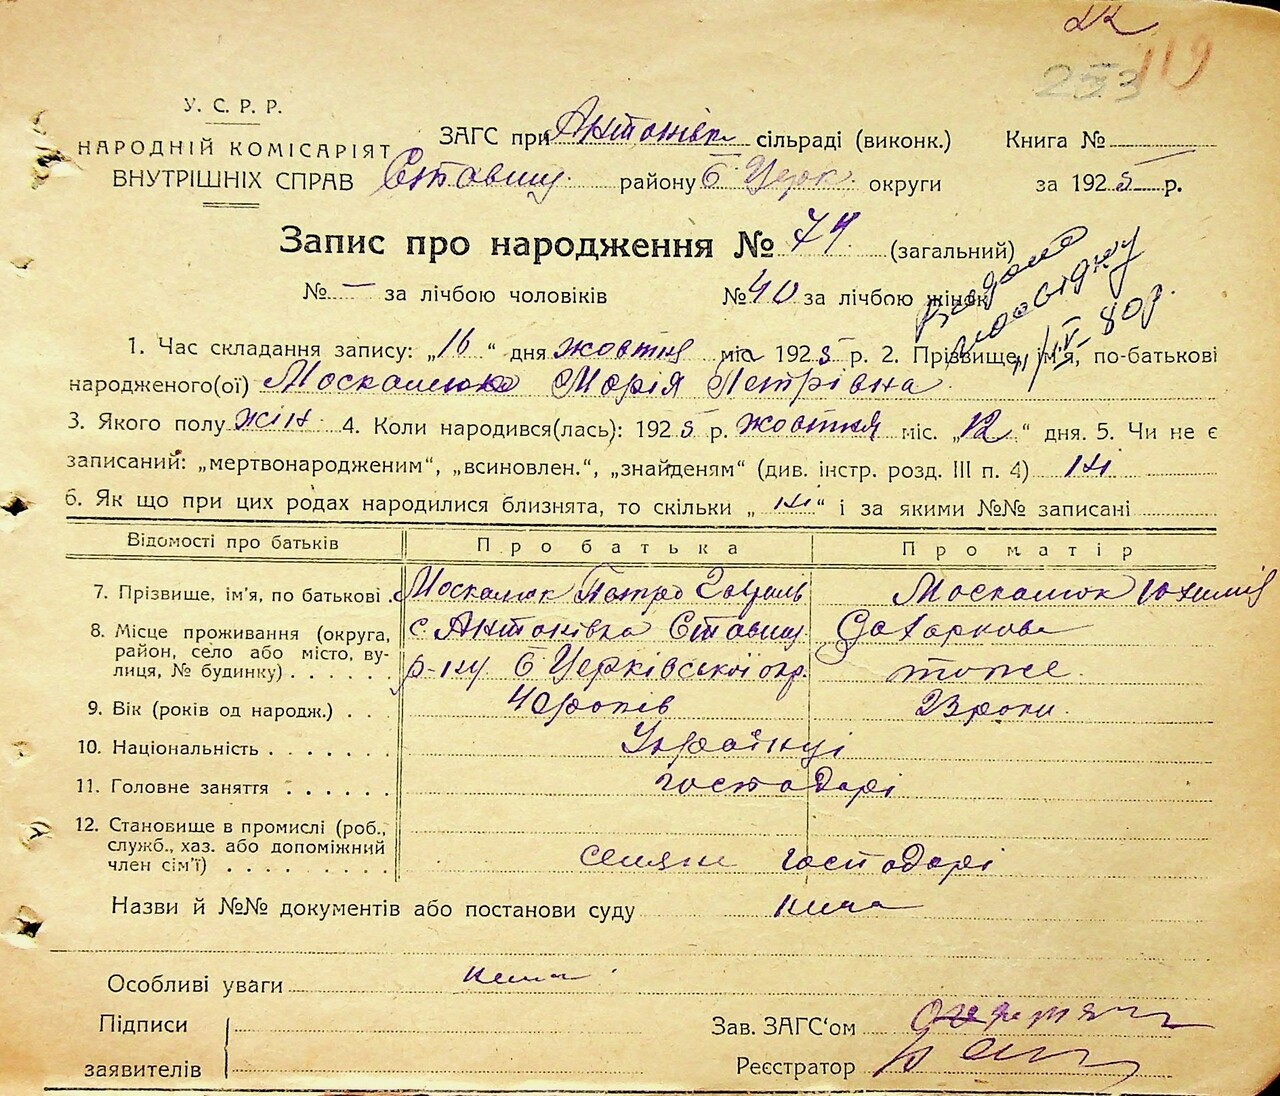 253 119
У. С. Р. Р.
НАРОДНІЙ КОМІСАРІЯТ
ВНУТРІШНІХ СПРАВ
ЗАГС при Антонівк сільраді (виконк.) Книга №
Ставищ. району Б Церк. округи за 1925 р.
Запис про народження № 74 (загальний)
№ — за лічбою чоловіків № 40 за лічбою жінок
1. Час складання запису: „16“ дня жовтня міс 1925 р. 2. Прізвище, ім'я, по-батькові
народженого(ої) Москалюк Марія Петрівна
3. Якого полу жін. 4. Коли народився(лась): 1925 р. жовтня міс. „12“ дня. 5. Чи не є
записаний: „мертвонародженим“, „всиновлен.“, „знайденям“ (див. інстр. розд. III п. 4) ні
6. Як що при цих родах народилися близнята, то скільки „ні“ і за якими №№ записані
Відомості про батьків Про батька Про матір
7. Прізвище, ім'я, по батькові Москалюк Петро Гаврил Москалюк Юхимія
8. Місце проживання (округа, район, село або місто, вулиця, № будинку) с. Антонівка Ставищ. Захаркова
р-ну Б Церківської окр. тоже.
9. Вік (років од народж.) 40 років 23 роки.
10. Національність Українці
11. Головне заняття господарі
12. Становище в промислі (роб.,
служб., хаз. або допоміжний
член сім'ї) селяне господарі
Назви й №№ документів або постанови суду нема
Особливі уваги нема
Підписи
заявителів
Зав. ЗАГС'ом
Реєстратор